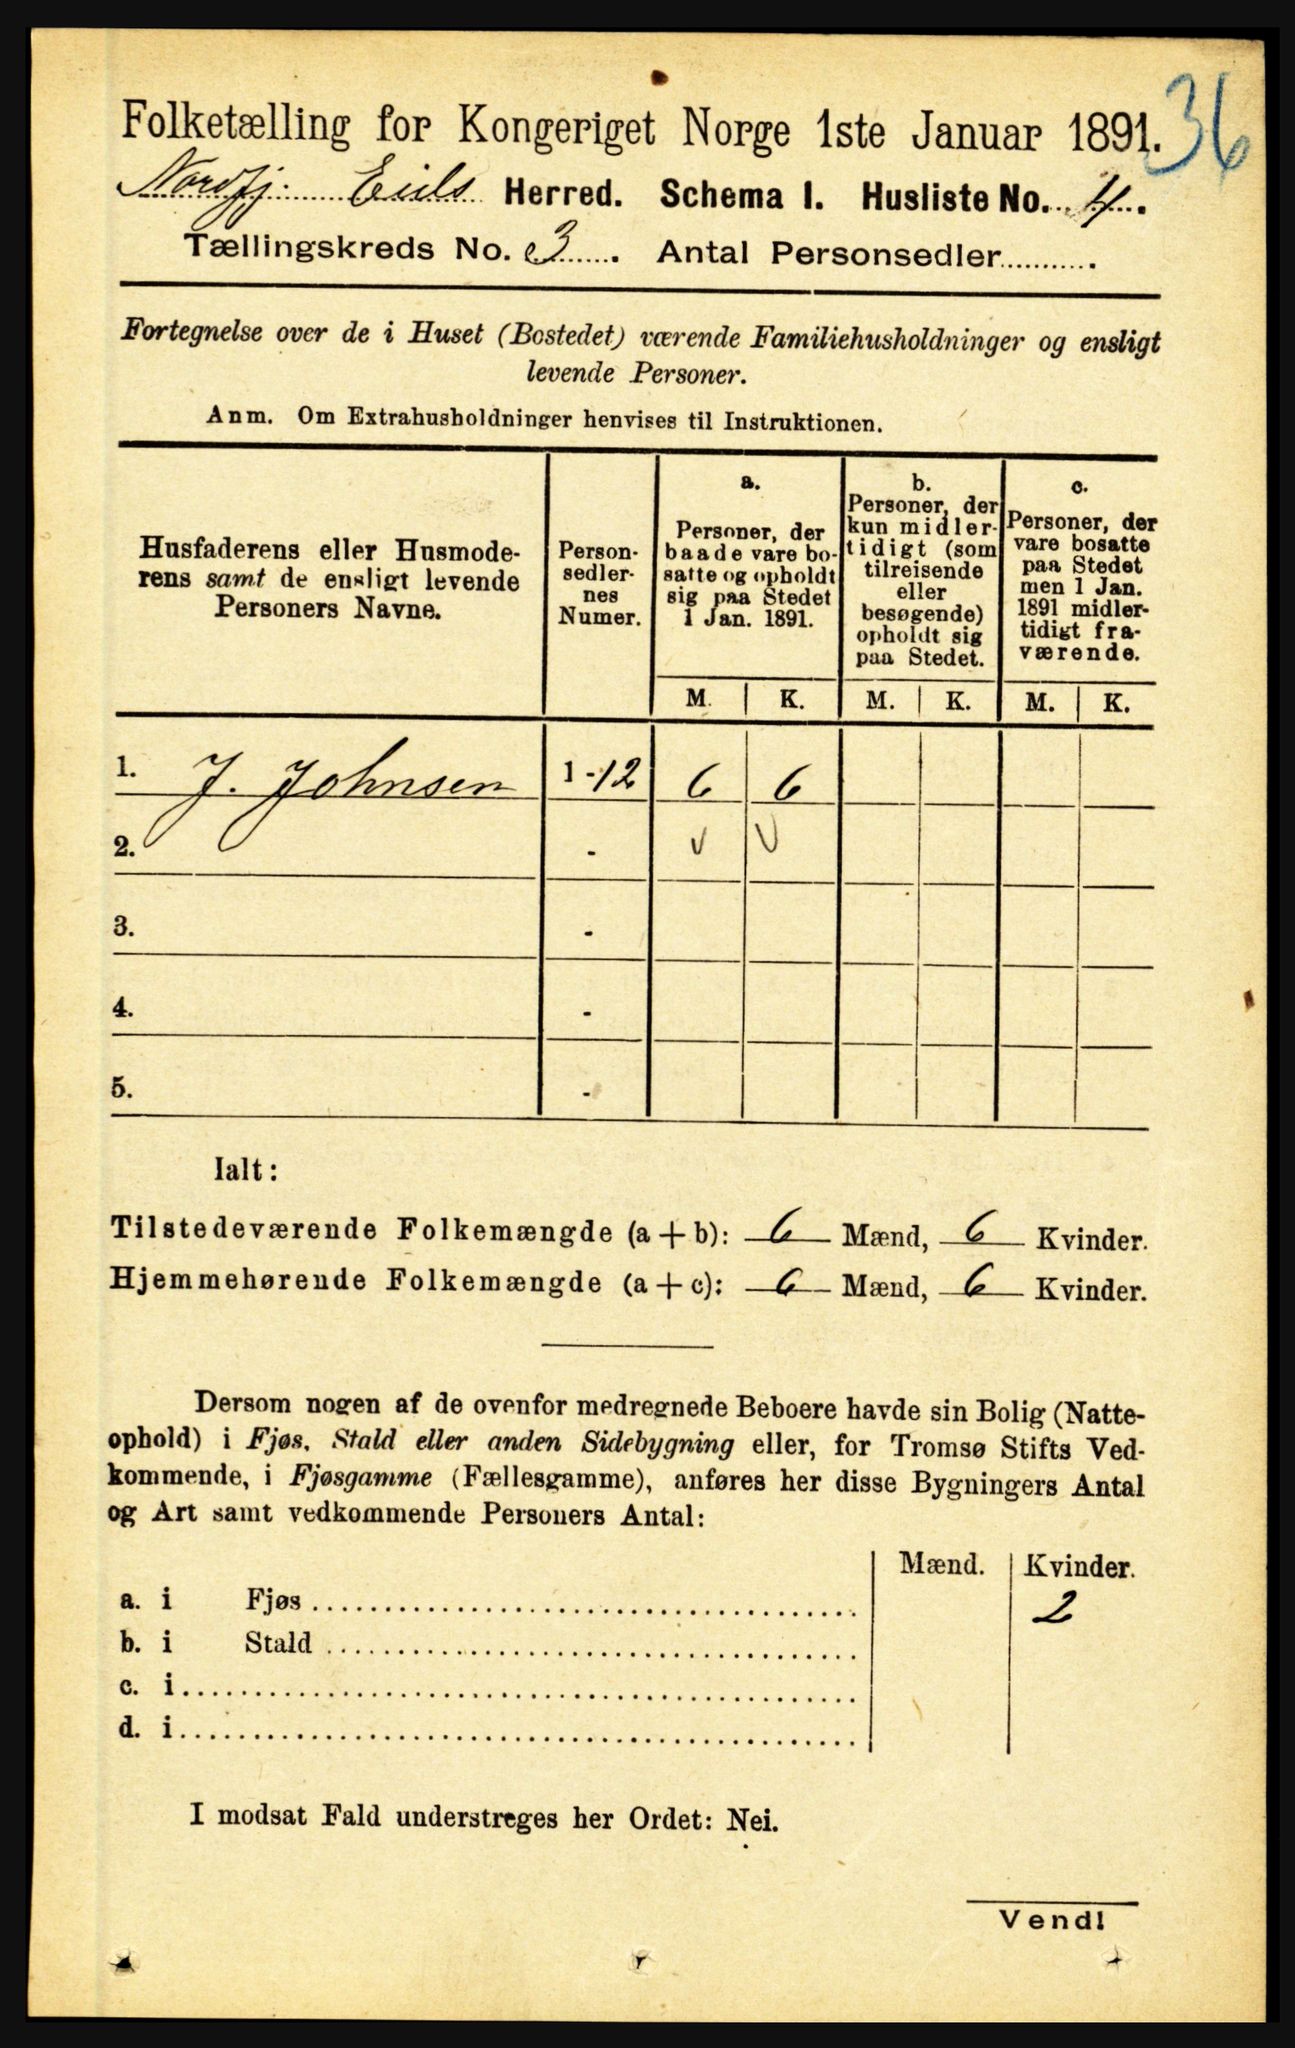 36
Folketælling for Kongeriget Norge 1ste Januar 1891.
Nordfj. Eids Herred. Schema I. Husliste No. 4.
Tællingskreds No. 3. Antal Personsedler...........
Fortegnelse over de i Huset (Bostedet) værende Familiehusholdninger og ensligt
levende Personer.
Anm. Om Extrahusholdninger henvises til Instruktionen.
Husfaderens eller Husmode-
rens samt de ensligt levende
Personers Navne.
Person-
sedler-
nes
Numer.
a.
Personer, der
baade vare bo-
satte og opholdt
sig paa Stedet
1 Jan. 1891.
b.
Personer, der
kun midler-
tidigt (som
tilreisende
eller
besøgende)
opholdt sig
paa Stedet.
c.
Personer, der
vare bosatte
paa Stedet
men 1 Jan.
1891 midler-
tidigt fra-
værende.
M. K. M. K. M. K.
1. J. Johnsen 1-12 6 6
2. - v v
3. -
4. -
5. -
Ialt:
Tilstedeværende Folkemængde (a + b): 6 Mænd, 6 Kvinder.
Hjemmehørende Folkemængde (a + c): 6 Mænd, 6 Kvinder.
Dersom nogen af de ovenfor medregnede Beboere havde sin Bolig (Natte-
ophold) i Fjøs, Stald eller anden Sidebygning eller, for Tromsø Stifts Ved-
kommende, i Fjøsgamme (Fællesgamme), anføres her disse Bygningers Antal
og Art samt vedkommende Personers Antal:
Mænd. Kvinder.
a. i Fjøs ........................................ 2
b. i Stald ........................................
c. i........................................
d. i........................................
I modsat Fald understreges her Ordet: Nei.
Vend!